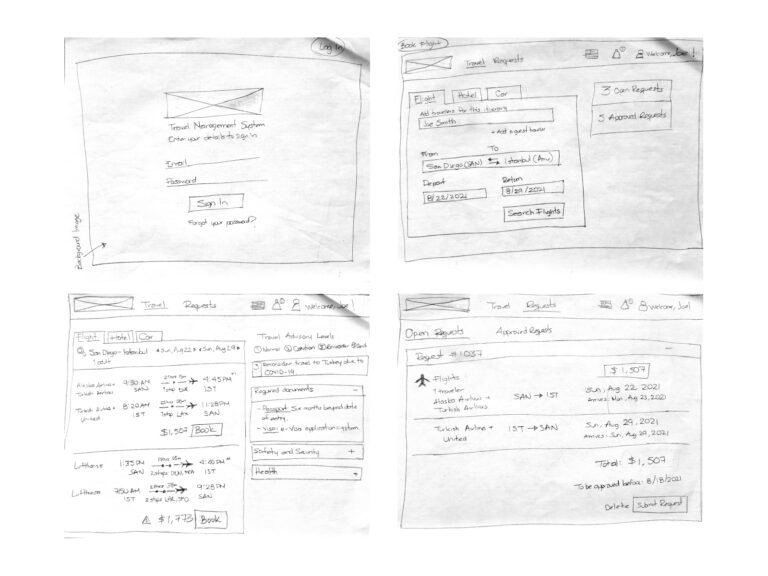 Log In
Travel Management System
Enter your details to sign in
Email
Password
Sign In
Forgot your password?
Background Image
Book Flight
Travel Requests
Welcome, Joe!
Flight Hotel Car
Add travelers for this itinerary
Joe Smith
+ Add a guest traveler
From To
San Diego (SAN) Istanbul (Any)
Depart Return
8/22/2021 8/29/2021
Search Flights
3 Open Requests
5 Approved Requests
Travel Requests
Welcome, Joe!
Flight Hotel Car
San Diego - Istanbul • Sun, Aug 22 • Sun, Aug 29
1 adult
Alaska Airlines 9:30 AM 4:45 PM +1
Turkish Airlines SAN 1 stop IST
Turkish Airlines 8:20 AM 11:28 PM
United IST 1 stop LAX SAN
$1,507 Book
Lufthansa 1:35 PM 4:40 PM
SAN 2 stops IST
Lufthansa 7:50 AM 9:28 PM
IST 2 stop SAN
$1,773 Book
Travel Advisory Levels
Normal Caution Reconsider
3 Reconsider travel to Turkey due to
COVID-19.
Required documents −
- Passport: Six months beyond date
of entry.
- Visa: e-Visa application system
Safety and Security +
Health +
Travel Requests
Welcome, Joe!
Open Requests Approved Requests
Request #1037 −
Flights $1,507
1 traveler
Alaska Airlines + SAN → IST Sun, Aug 22, 2021
Turkish Airlines Arrives: Mon, Aug 23, 2021
Turkish Airlines + IST → SAN Sun, Aug 29, 2021
United Arrives: Sun, Aug 29, 2021
Total: $1,507
To be approved before: 8/18/2021
Delete Submit Request